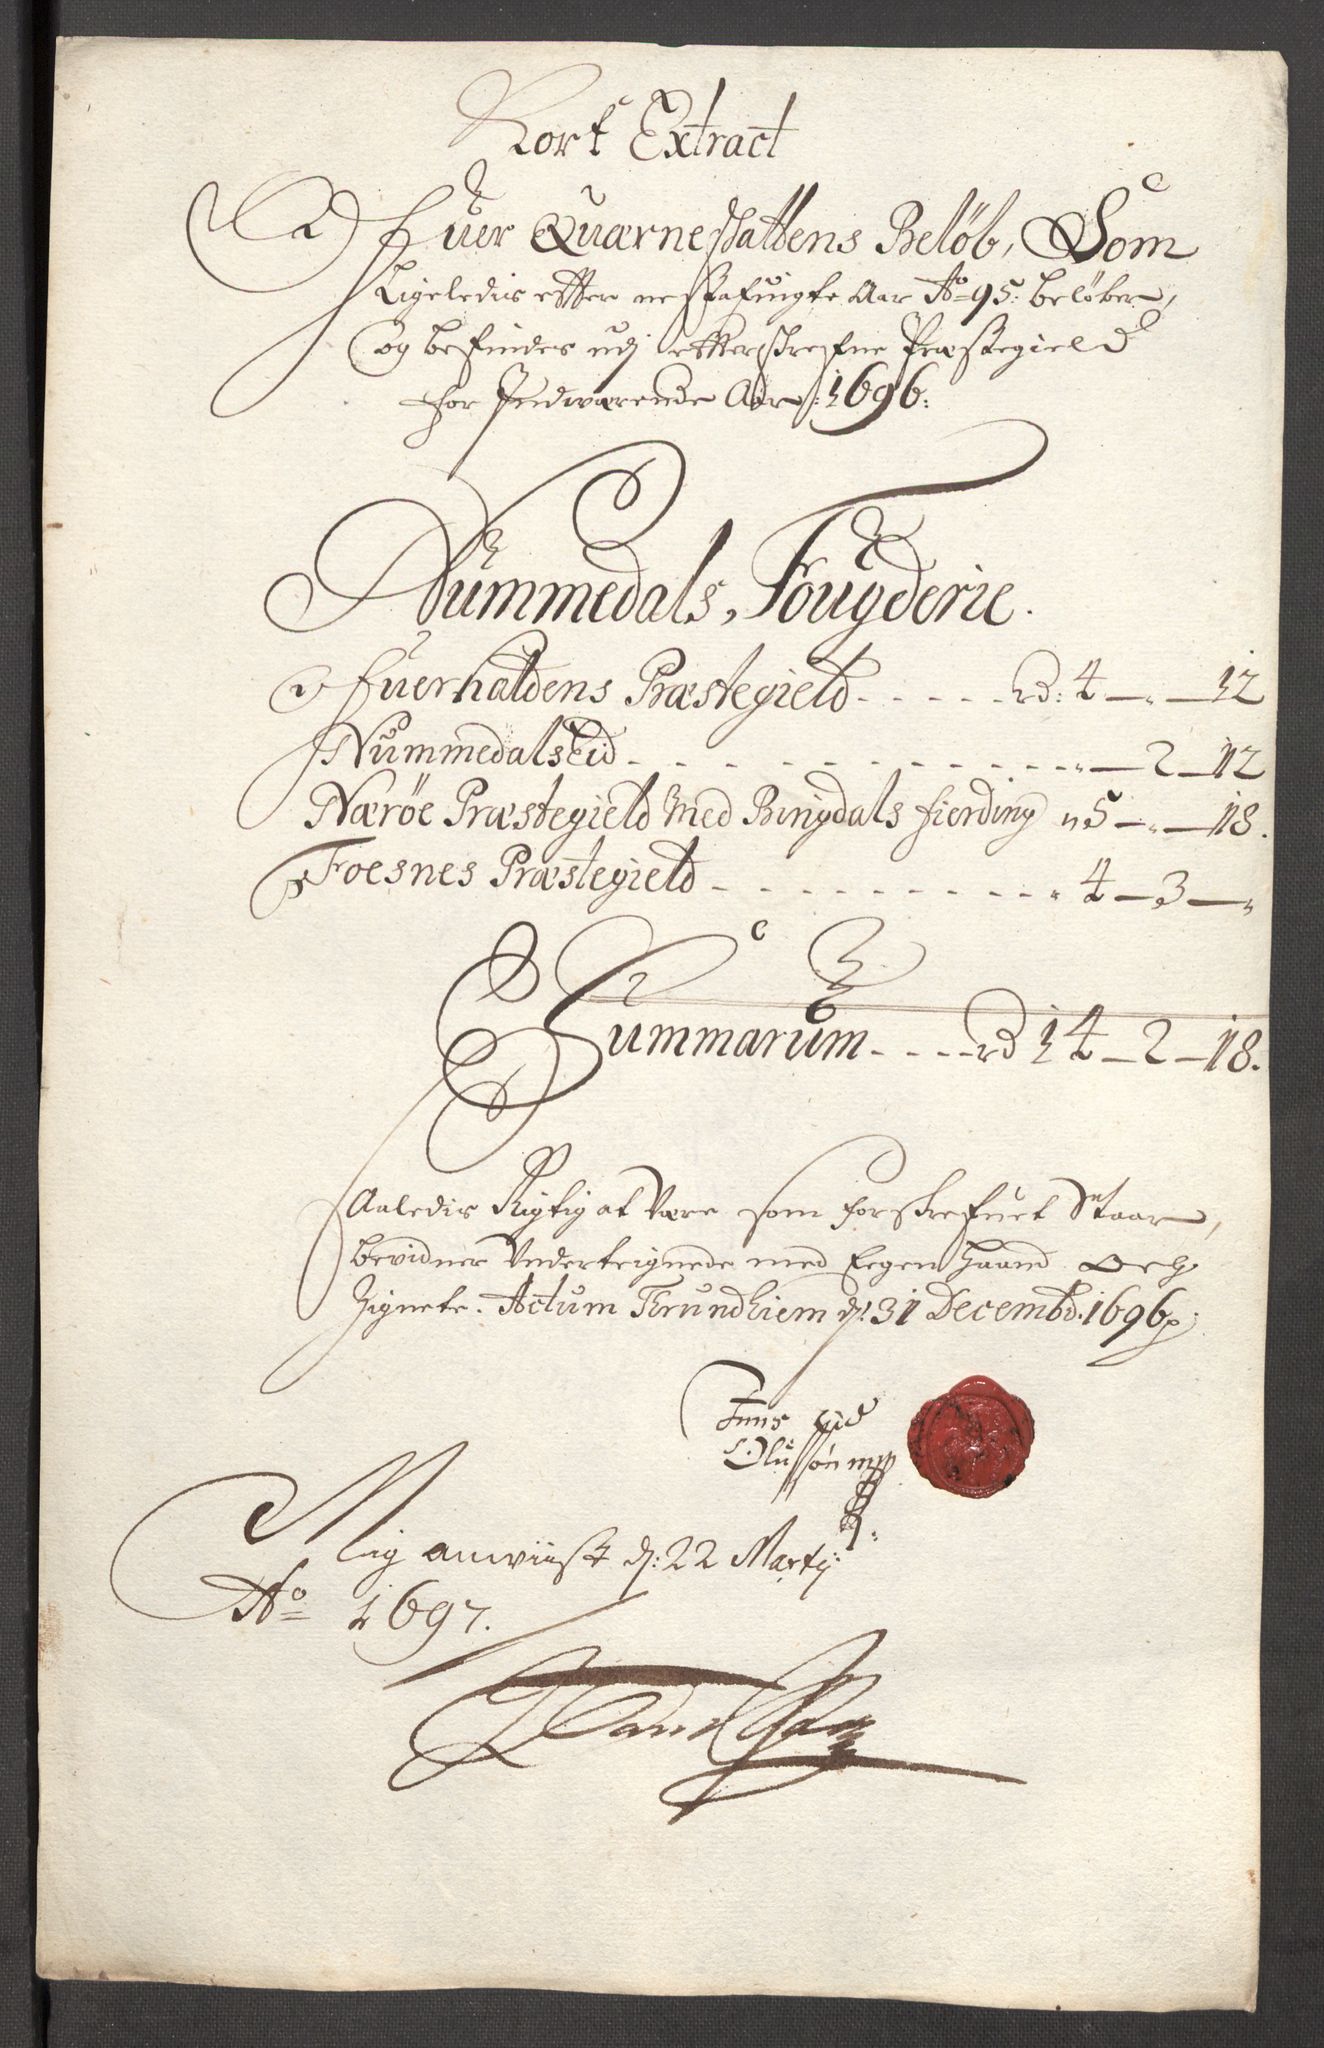 Kort Extract
Ofuer Quærneskattens Beløb, Som
Ligeledis effter nestafuigte Aar Ao 95: beløber,
og befindes udj effterskrefne Præstegield
for Indværende Aar: 1696:
Nummedals, Fougderie.
Ofuerhaldens Præstegield - - - - - rd: 4 — „ — 12
Nummedalseid - - - - - - - - - - - „ — 2 — 12
Nærøe Præstegield Med Bingdals fierding „ 5 — „ — 18.
Foesnes Præstegield - - - - - - - - - „ 4 — 3 — „
Summarum - - - - rd 14 — 2 — 18.
Saaledis Rigtig at Være som forskrefuet Staar,
bevidner Underteignede med Eegen Haand och
Zignete. Actum Trundhiem d: 31 Decembd: 1696
Olussøn mpp
Mig anwiist d: 22 Martij:
Ao 1697.